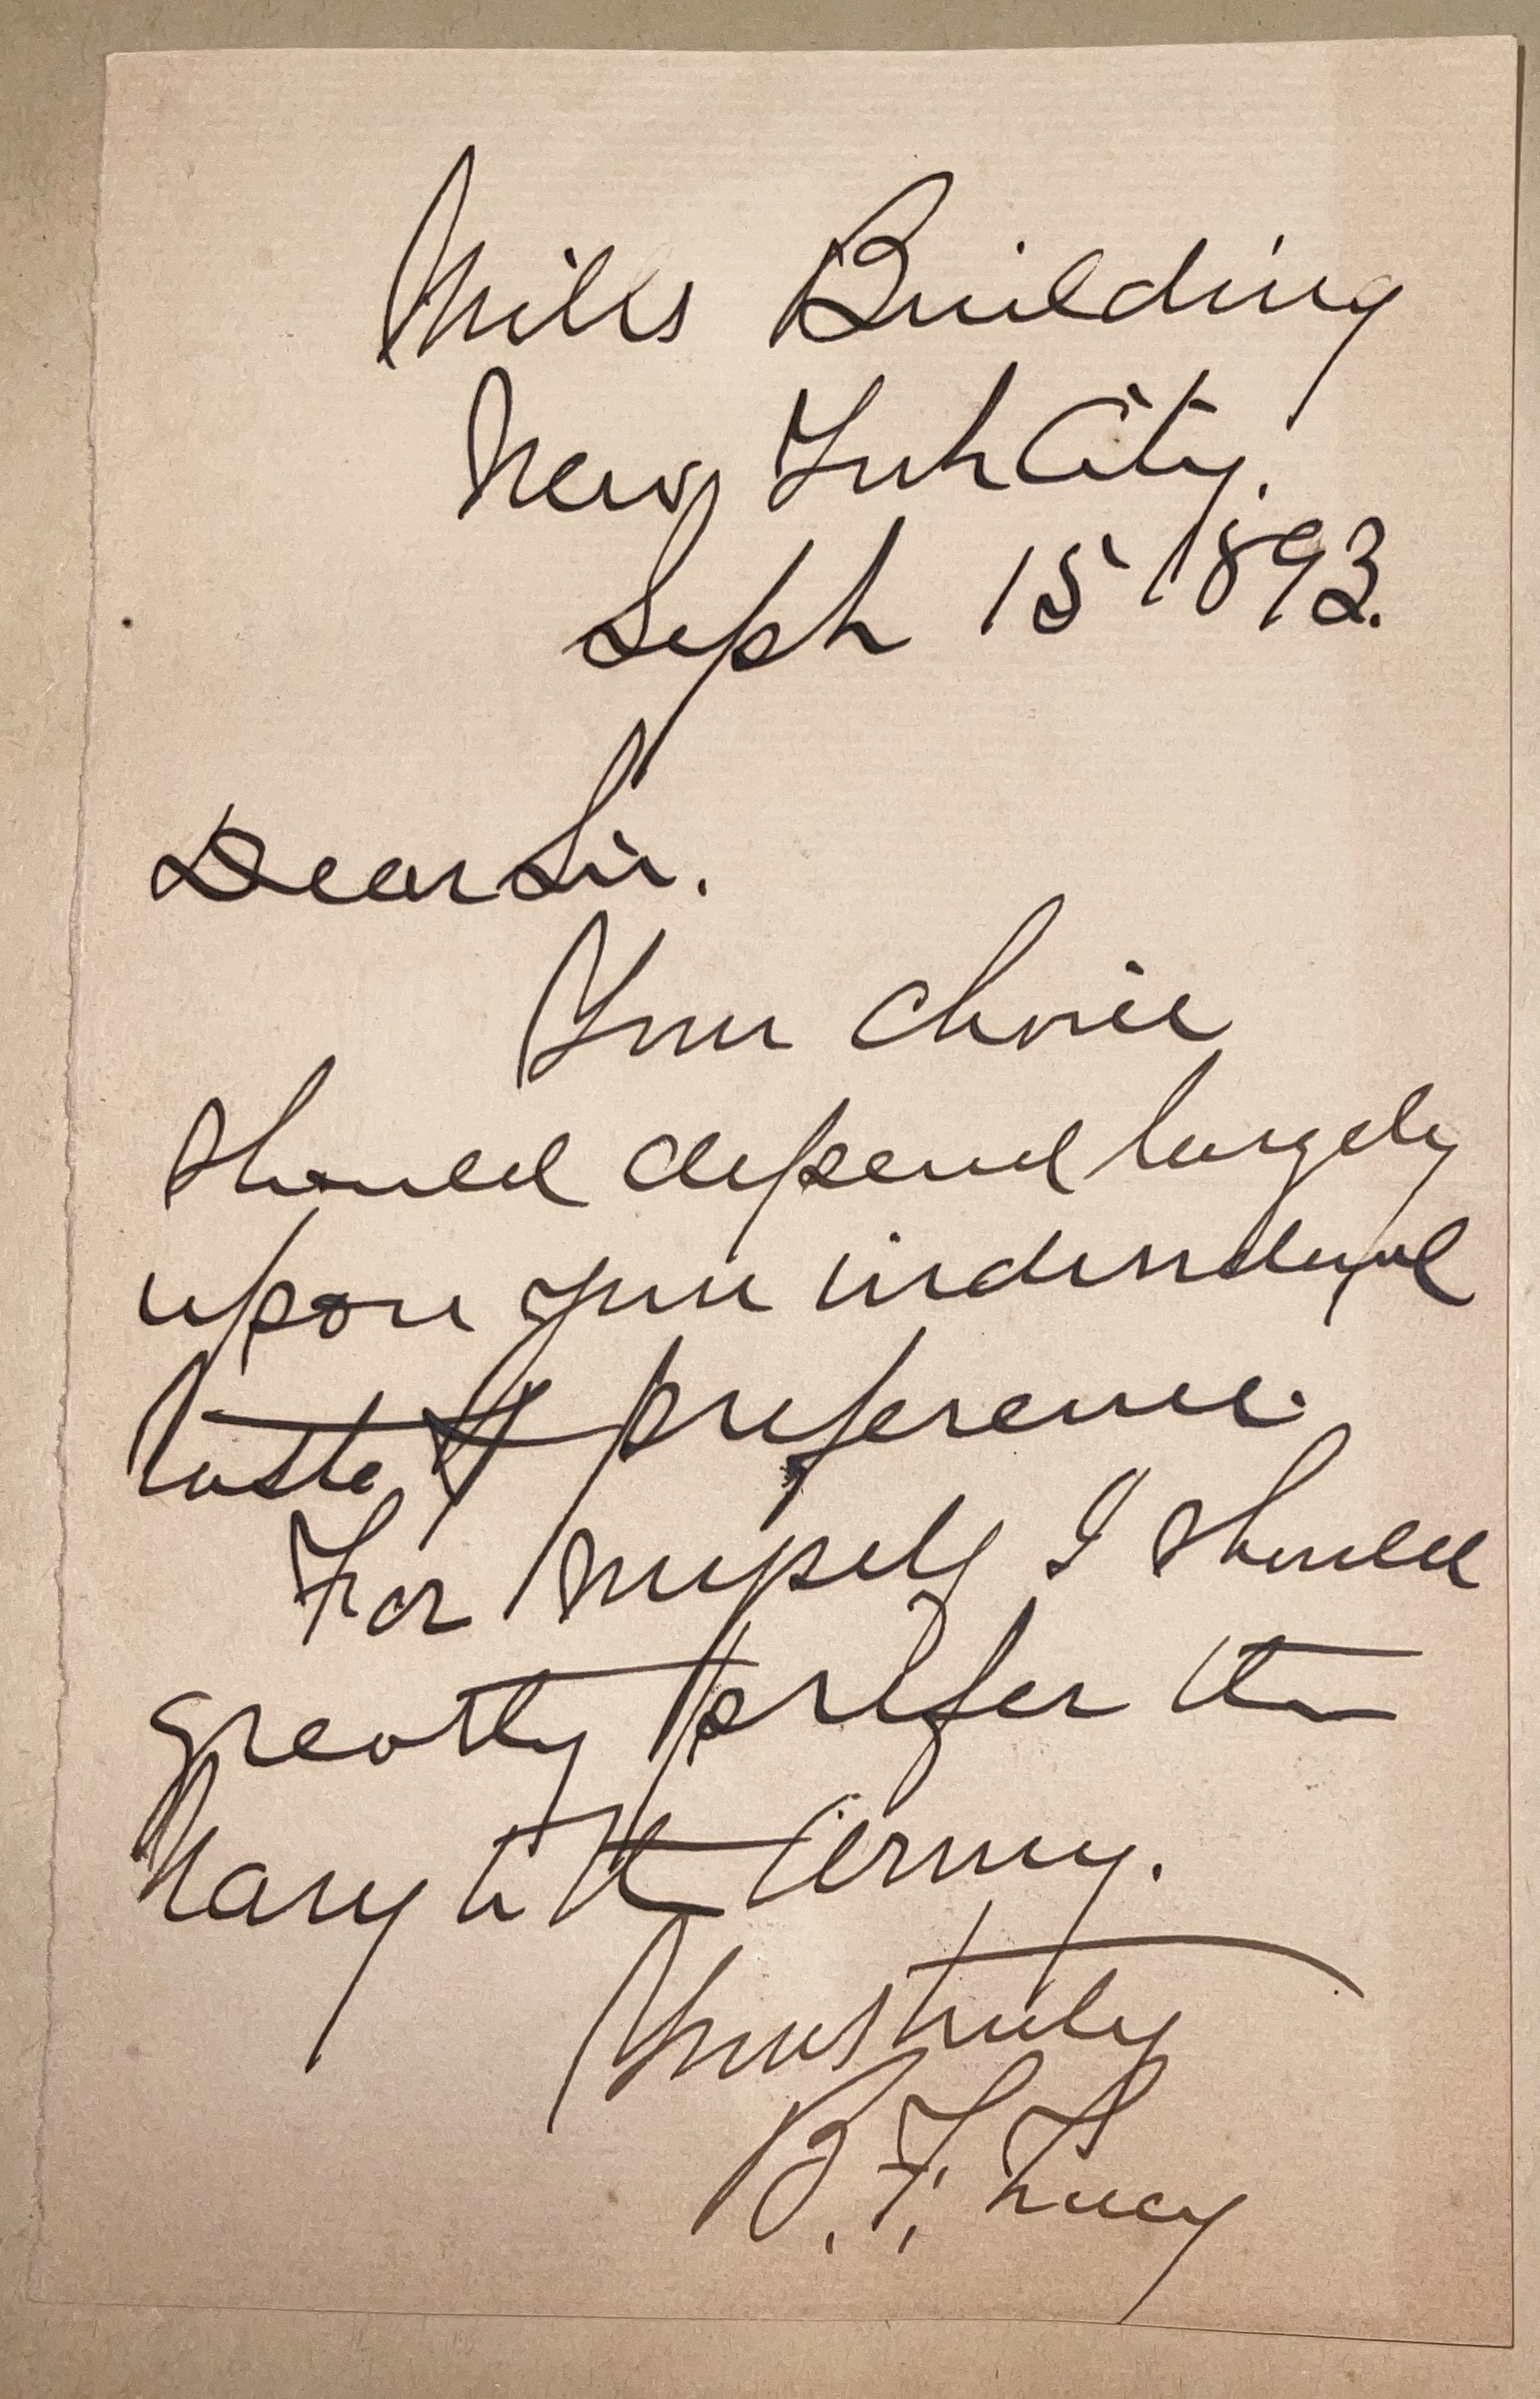 Mills Building
New York City.
Sept 15 1893.
Dear Sir.
Your choice
should depend largely
upon your individual
taste & preference.
For myself I should
greatly prefer the
Navy to the Army.
Yours truly
B. F. Tracy